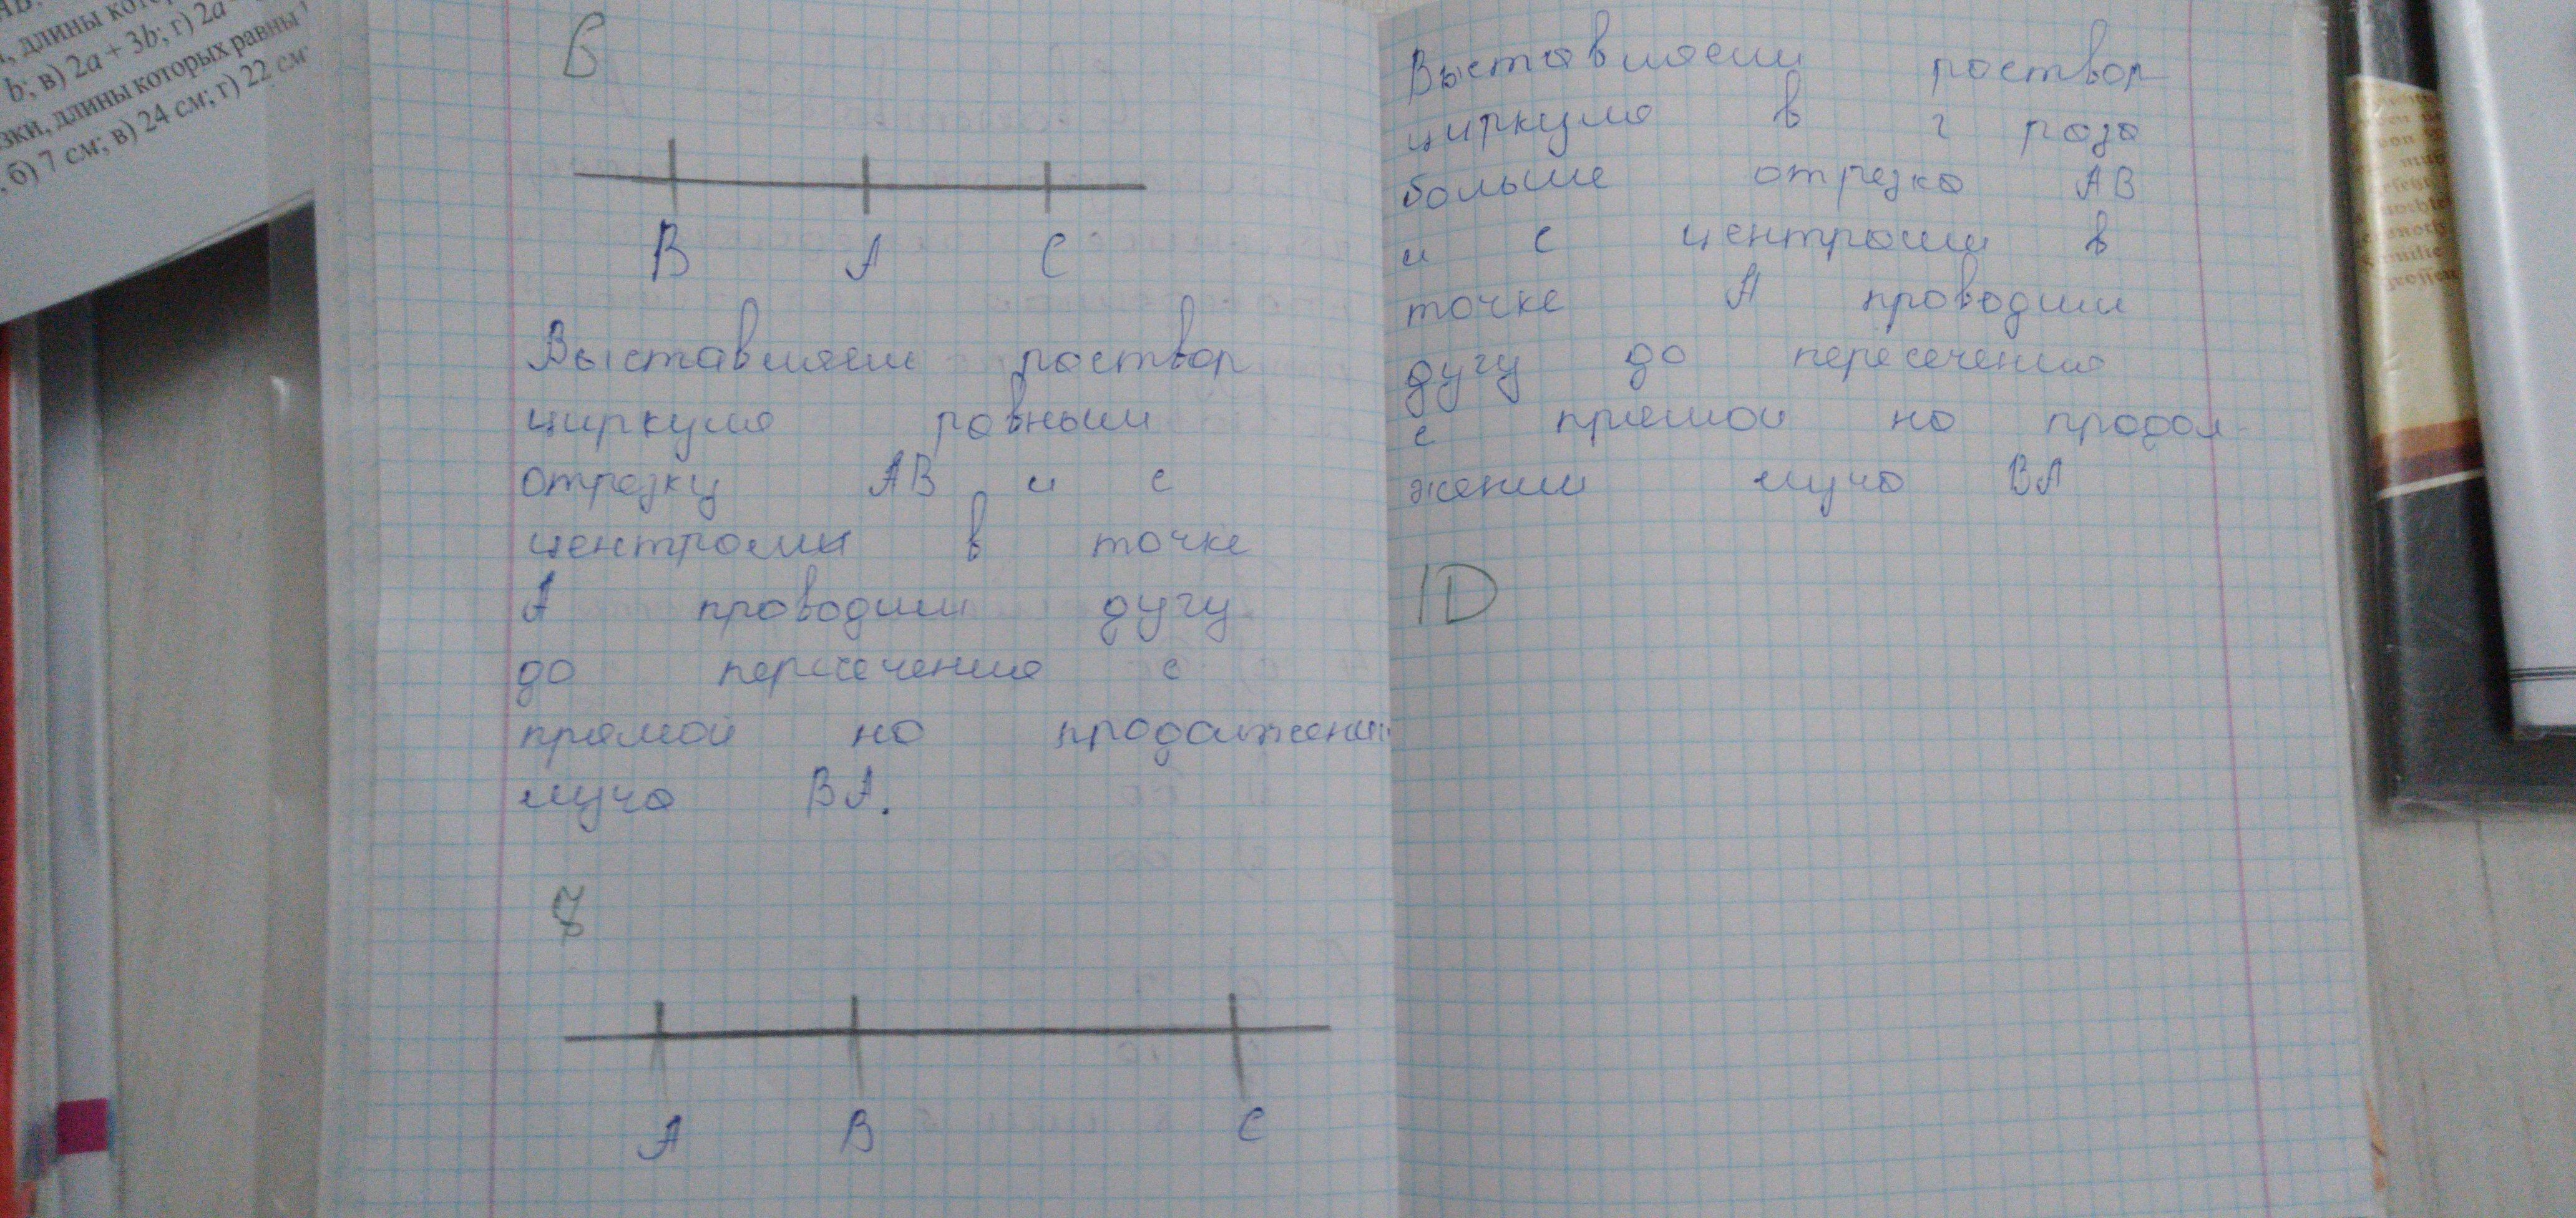 , длины кото
b; в) 2a + 3b; г) 2a
зки, длины которых равны
, б) 7 см; в) 24 см; г) 22 см
6
B A C
Выставляем раствор
циркуля равным
отрезку AB и с
центром в точке
A проводим дугу
до пересечения с
прямой на продолжении
луча BA.
8
A B C
Выставляем раствор
циркуля в 2 раза
больше отрезка AB
и с центром в
точке A проводим
дугу до пересечения
с прямой на продол-
жении луча BA
10